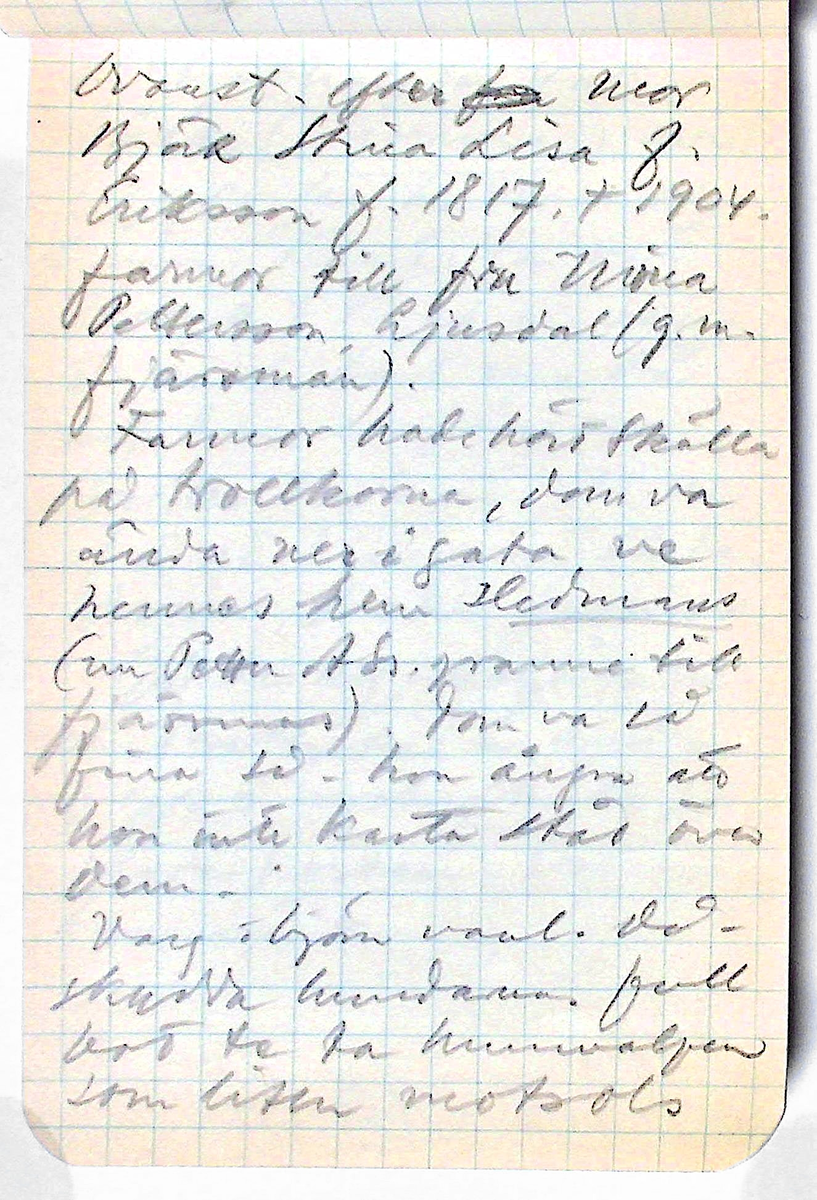 Ovanst. efter mor
Björk Stina Lisa f.
Eriksson f. 1817. † 1904.
farmor till fru Mina
Pettersson, Ljusdal (g.m.
fjärsman).
Farmor hade hört skälla
på trollkorna, dom va
ända ner i gata ve
hennes hem Hedmans
(nu Petter A Ss. granne till
fjärsmans). Dom va så
fina så - hon ångra att
hon inte kasta stål över
dem.
Varg o björn vanl. Då-
skydda hundarna. full
bort te ta hunvalpen
som liten motsols